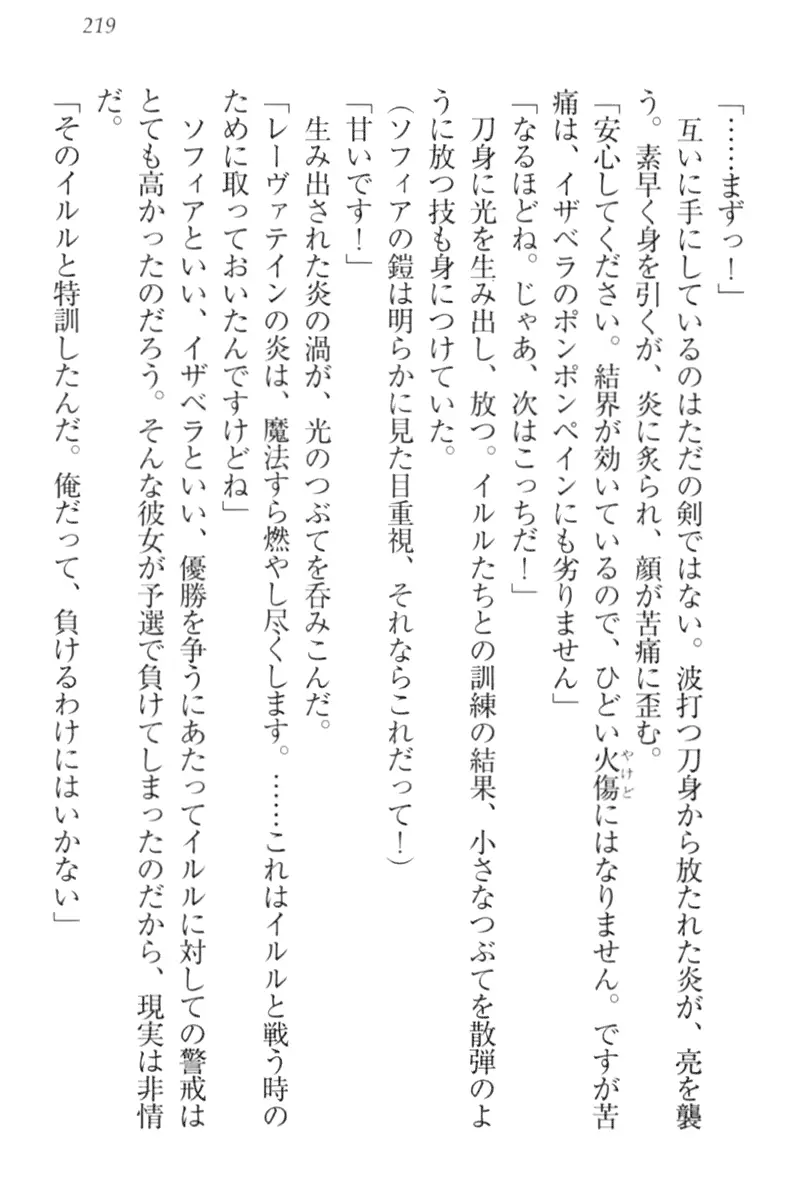 219
「……まずっ！」
　互いに手にしているのはただの剣ではない。波打つ刀身から放たれた炎が、亮を襲
う。素早く身を引くが、炎に炙られ、顔が苦痛に歪む。
「安心してください。結界が効いているので、ひどい火傷にはなりません。ですが苦
痛は、イザベラのポンポンペインにも劣りません」
「なるほどね。じゃあ、次はこっちだ！」
　刀身に光を生み出し、放つ。イルルたちとの訓練の結果、小さなつぶてを散弾のよ
うに放つ技も身につけていた。
（ソフィアの鎧は明らかに見た目重視、それならこれだって！）
「甘いです！」
　生み出された炎の渦が、光のつぶてを呑みこんだ。
「レーヴァテインの炎は、魔法すら燃やし尽くします。……これはイルルと戦う時の
ために取っておいたんですけどね」
　ソフィアといい、イザベラといい、優勝を争うにあたってイルルに対しての警戒は
とても高かったのだろう。そんな彼女が予選で負けてしまったのだから、現実は非情
だ。
「そのイルルと特訓したんだ。俺だって、負けるわけにはいかない」
やけど